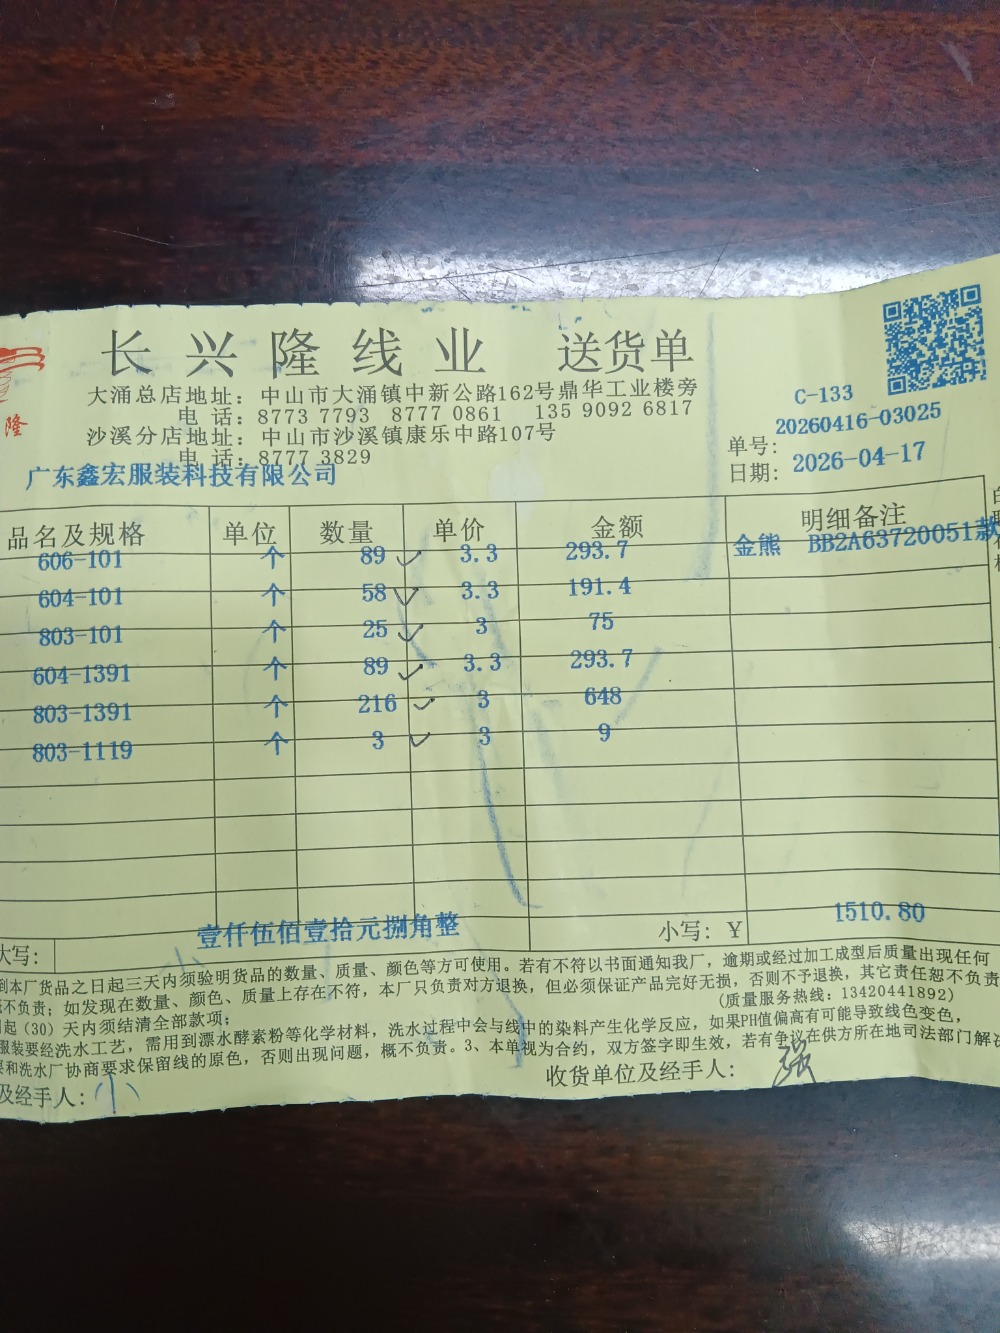 长兴隆线业 送货单
隆
大涌总店地址：中山市大涌镇中新公路162号鼎华工业楼旁
电 话：8773 7793 8777 0861 135 9092 6817
沙溪分店地址：中山市沙溪镇康乐中路107号
电 话：8777 3829
C-133
单号：20260416-03025
日期：2026-04-17
广东鑫宏服装科技有限公司
品名及规格 单位 数量 单价 金额 明细备注
606-101 个 89 3.3 293.7 金熊 BB2A63720051款
604-101 个 58 3.3 191.4
803-101 个 25 3 75
604-1391 个 89 3.3 293.7
803-1391 个 216 3 648
803-1119 个 3 3 9
大写：壹仟伍佰壹拾元捌角整 小写：￥ 1510.80
到本厂货品之日起三天内须验明货品的数量、质量、颜色等方可使用。若有不符以书面通知我厂，逾期或经过加工成型后质量出现任何
概不负责；如发现在数量、颜色、质量上存在不符，本厂只负责对方退换，但必须保证产品完好无损，否则不予退换，其它责任恕不负责
(质量服务热线：13420441892)
起（30）天内须结清全部款项；
服装要经洗水工艺，需用到漂水酵素粉等化学材料，洗水过程中会与线中的染料产生化学反应，如果PH值偏高有可能导致线色变色，
要和洗水厂协商要求保留线的原色，否则出现问题，概不负责。3、本单视为合约，双方签字即生效，若有争议在供方所在地司法部门解决
及经手人：小 收货单位及经手人：强